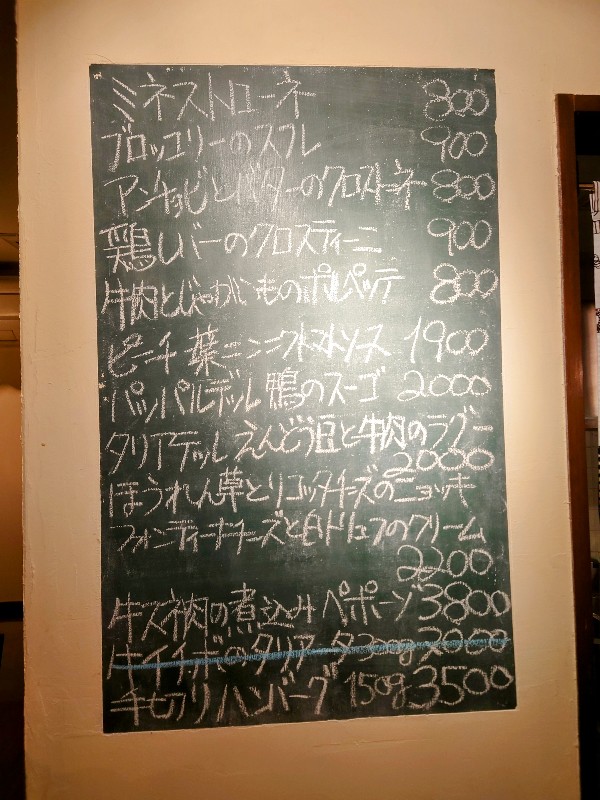 ミネストローネ 800
ブロッコリーのスフレ 900
アンチョビとバターのクロストーネ 800
鶏レバーのクロスティーニ 900
牛肉とじゃがいものポルペッテ 800
ピーチ 葉ニンニクトマトソース 1900
パッパルデッレ 鴨のスーゴ 2000
タリアテッレ えんどう豆と牛肉のラグー
2000
ほうれん草とリコッタチーズのニョッキ
フォンディーナチーズと白トリュフのクリーム
2200
牛スネ肉の煮込み ペポーゾ 3800
牛イチボのタリアータ 300g
手切りハンバーグ 150g 3500